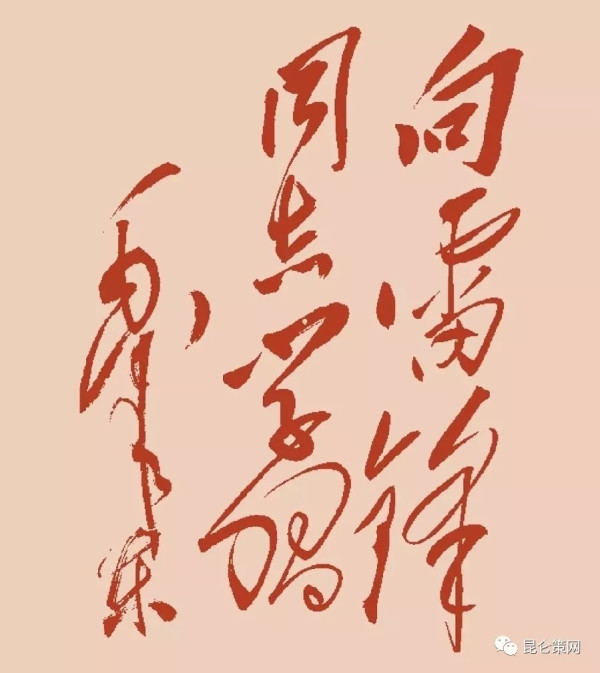 向雷锋
同志学习
毛泽东
昆仑策网